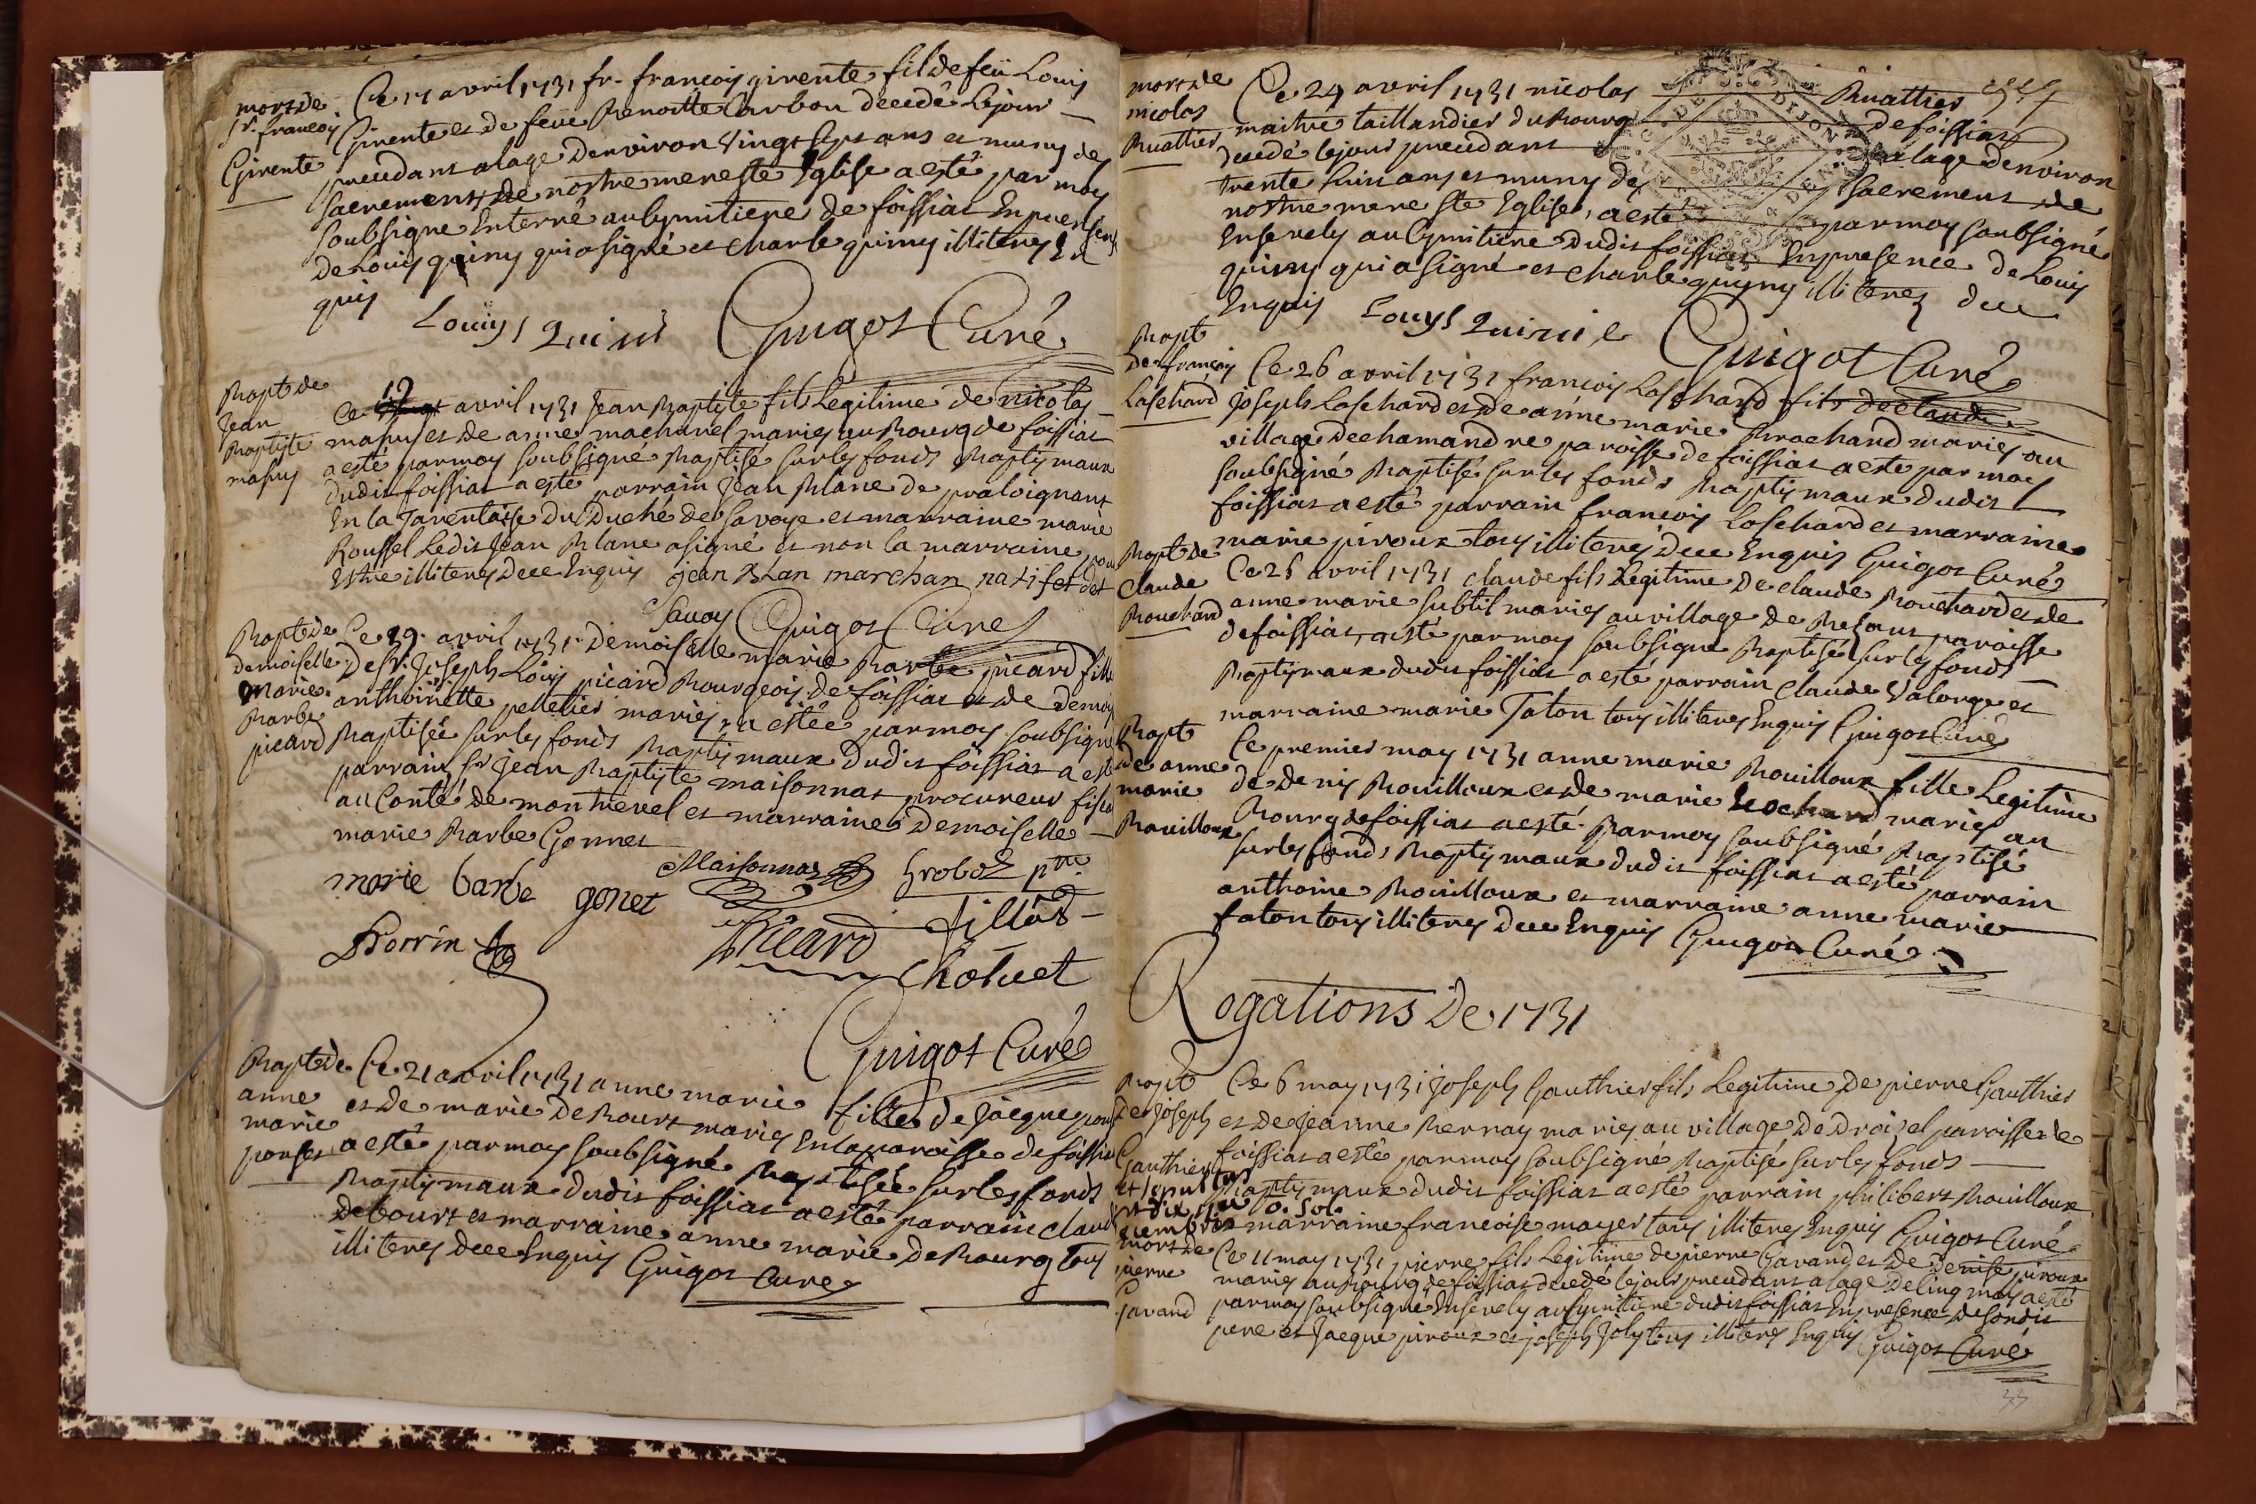 mort de
fr. francois
Girente
Ce 17 avril 1731 fr. francois girente fil de feü Louis
Girente et de feüe Benoitte Carbon decedé le jour
precedant a lage denviron vingt sept ans et muny des
sacrements de nostre mere ste Eglise a esté par moy
soubsigne Enterré au Cymitiere de foissiat En presence
de Louis quiny qui a signé et charle quiny illiteres En
quis
Louys Quini Guigot Curé
Bapt de
Jean
Baptiste
masuy
Ce 19 avril 1731 Jean Baptiste fils Legitime de nicolas
masuy et de anne machurel mariés au Bourg de foissiat
a esté par moy soubsigne Baptisé sur les fonds Baptismaux
dudit foissiat a esté parrain Jean Blanc de praloignant
En la Tarentaise du Duché de Savoye et marraine marie
Roussel Ledit Jean Blanc a signé et non la marraine pour
Estre illiteres dece Enquis jean Blan marchan natif et det
Savoy Guigot Curé
Bapt de
demoiselle
marie
Barbe
picard
Ce 19 avril 1731 demoiselle marie Barbe picard fille
de sr. Joseph Louis picard Bourgeois de foissiat et de demois
anthoinette pelletier mariés, a estée par moy soubsigne
Baptisée sur les fonds Baptismaux dudit foissiat a esté
parrain sr Jean Baptiste maisonnat procureur fiscal
au Conté de montrevel et marraine demoiselle
marie Barbe Gonnet
marie barbe gonet Maisonnat Brobot ptre
Picard Fillod
Perrin Cholvet
Guigot Curé
Bapt de
anne
marie
ponset
Ce 21 avril 1731 anne marie fille de Jacque ponset
et de marie de Bourt mariés En la paroisse de foissiat
a esté par moy soubsigné Baptisée sur les fonds
Baptismaux dudit foissiat a esté parrain claude
debourt et marraine anne marie de Bourg tous
illiteres dece Enquis Guigot Curé
mort de
nicolas
Buattier
Ce 24 avril 1731 nicolas Buattier
maitre taillandier du Bourg de foissiat
decedé le jour precedant a lage denviron
trente huit ans et muny des sacrement de
nostre mere ste Eglise, a esté par moy soubsigné
Ensevely au Cymitiere dudit foissiat En presence de Louis
quiny qui a signé et charle quyny illiterez dece
Enquis Louys Quini Guigot Curé
Bapt
de francois
Laschard
Ce 26 avril 1731 francois Laschard fils de claude
Joseph Laschard et de anne marie Brochand mariés au
village de chamandre paroisse de foissiat a esté par moy
soubsigné Baptisé sur les fonds Baptismaux dudit
foissiat a esté parrain francois Laschard et marraine
marie piroux tous illiteres dece Enquis Guigot Curé
Bapt de
Claude
Bouchard
Ce 28 avril 1731 claude fils Legitime de claude Bouchard et de
anne marie subtil mariés au village de paroisse
de foissiat, a esté par moy soubsigne Baptisé sur les fonds
Baptismaux dudit foissiat a esté parrain Claude Valorge et
marraine marie Taton tous illiteres Enquis Guigot Curé
Bapt
de anne
marie
Bouilloux
Ce premier may 1731 anne marie Bouilloux fille Legitime
de denis Bouilloux et de marie mariés au
Bourg de foissiat a esté par moy soubsigné Baptisé
sur les fonds Baptismaux dudit foissiat a esté parrain
anthoine Bouilloux et marraine anne marie
Taton tous illiteres dece Enquis Guigot Curé
Rogations de 1731
Bapt
de Joseph
Gauthier
Ce 6 may 1731 Joseph Gauthier fils Legitime de pierre Gauthier
et de Jeanne Bernay mariés au village de droisel paroisse de
foissiat a esté par moy soubsigné Baptisé sur les fonds
Baptismaux dudit foissiat a esté parrain philibert Bouilloux
marraine francoise mayer tous illiteres Enquis Guigot Curé
mort de
pierre
Gavand
Ce 11 may 1731 pierre fils Legitime de pierre Gavand et de denise piroux
mariés au Bourg de foissiat decedé le jour precedant a lage de Cinq mois a esté
par moy soubsigne Ensevely au Cymitiere dudit foissiat En presence de son dit
pere et Jacque piroux et joseph Joly tous illiteres Enquis Guigot Curé